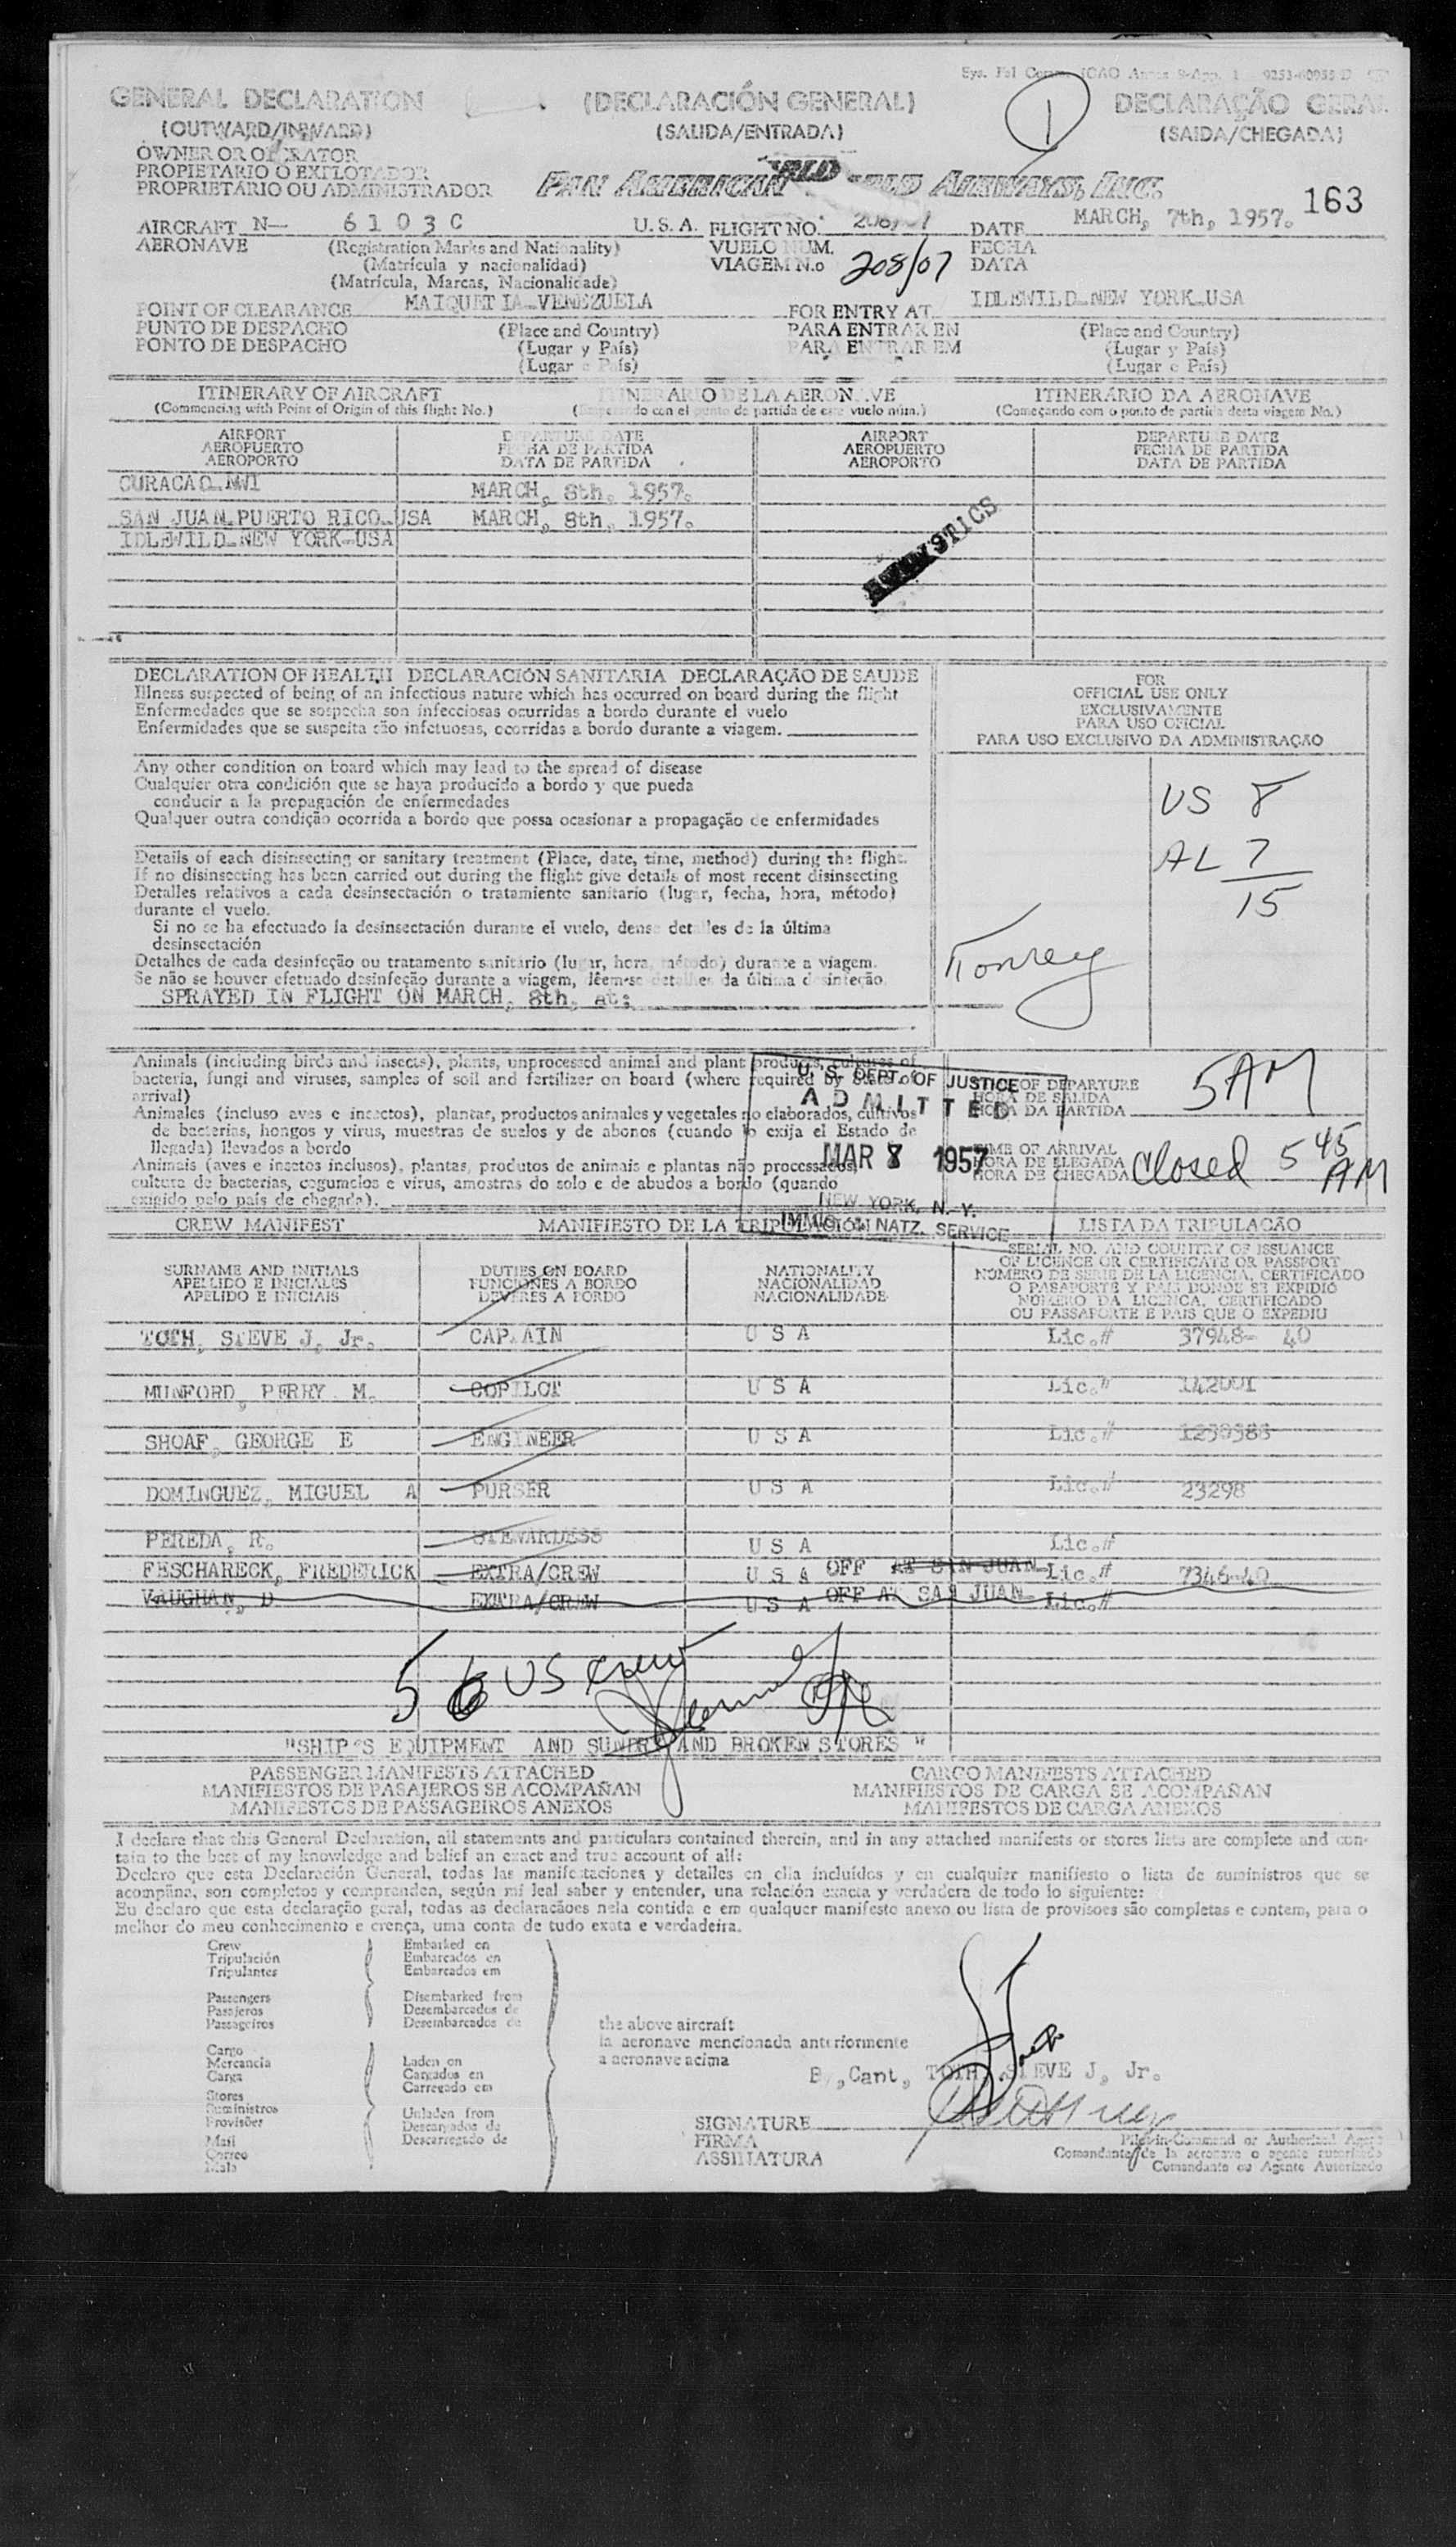 GENERAL DECLARATION (DECLARACIÓN GENERAL) DECLARAÇÃO GERAL
(OUTWARD/INWARD) (SALIDA/ENTRADA) 1 (SAIDA/CHEGADA)
OWNER OR OPERATOR
PROPIETARIO O EXPLOTADOR
PROPRIETÁRIO OU ADMINISTRADOR PAN AMERICAN WORLD AIRWAYS, INC. 163
AIRCRAFT N— 6103C U.S.A. FLIGHT NO. DATE MARCH, 7th, 1957.
AERONAVE (Registration Marks and Nationality) VUELO NUM. FECHA
(Matrícula y nacionalidad) VIAGEM N.o 208/07 DATA
(Matrícula, Marcas, Nacionalidade)
POINT OF CLEARANCE MAIQUETIA-VENEZUELA FOR ENTRY AT IDLEWILD-NEW YORK-USA
PUNTO DE DESPACHO (Place and Country) PARA ENTRAR EN (Place and Country)
PONTO DE DESPACHO (Lugar y País) PARA ENTRAR EM (Lugar y País)
(Lugar e País) (Lugar e País)
ITINERARY OF AIRCRAFT ITINERARIO DE LA AERONAVE ITINERÁRIO DA AERONAVE
(Commencing with Point of Origin of this flight No.) (Empezando con el punto de partida de este vuelo núm.) (Começando com o ponto de partida desta viagem No.)
AIRPORT DEPARTURE DATE AIRPORT DEPARTURE DATE
AEROPUERTO FECHA DE PARTIDA AEROPUERTO FECHA DE PARTIDA
AEROPORTO DATA DE PARTIDA AEROPORTO DATA DE PARTIDA
CURACAO-NWI MARCH, 8th, 1957.
SAN JUAN-PUERTO RICO-USA MARCH, 8th, 1957.
IDLEWILD-NEW YORK-USA
DECLARATION OF HEALTH DECLARACIÓN SANITARIA DECLARAÇÃO DE SAUDE
Illness suspected of being of an infectious nature which has occurred on board during the flight
Enfermedades que se sospecha son infecciosas ocurridas a bordo durante el vuelo
Enfermidades que se suspeita são infetuosas, ocorridas a bordo durante a viagem.
FOR
OFFICIAL USE ONLY
EXCLUSIVAMENTE
PARA USO OFICIAL
PARA USO EXCLUSIVO DA ADMINISTRAÇÃO
Any other condition on board which may lead to the spread of disease
Cualquier otra condición que se haya producido a bordo y que pueda
conducir a la propagación de enfermedades
Qualquer outra condição ocorrida a bordo que possa ocasionar a propagação de enfermidades
US 8
AL 7
15
Details of each disinsecting or sanitary treatment (Place, date, time, method) during the flight.
If no disinsecting has been carried out during the flight give details of most recent disinsecting
Detalles relativos a cada desinsectación o tratamiento sanitario (lugar, fecha, hora, método)
durante el vuelo.
Si no se ha efectuado la desinsectación durante el vuelo, dense detalles de la última
desinsectación
Detalhes de cada desinfeção ou tratamento sanitário (lugar, hora, método) durante a viagem.
Se não se houver efetuado desinfeção durante a viagem, lêem-se detalhes da última desinfeção.
SPRAYED IN FLIGHT ON MARCH, 8th, at:
Animals (including birds and insects), plants, unprocessed animal and plant products, cultures of
bacteria, fungi and viruses, samples of soil and fertilizer on board (where required by State of
arrival)
Animales (incluso aves e insectos), plantas, productos animales y vegetales no elaborados, cultivos
de bacterias, hongos y virus, muestras de suelos y de abonos (cuando lo exija el Estado de
llegada) llevados a bordo
Animais (aves e insetos inclusos), plantas, produtos de animais e plantas não processados,
cultura de bacterias, cogumelos e virus, amostras do solo e de abudos a bordo (quando
exigido pelo país de chegada).
U. S. DEPT. OF JUSTICE
ADMITTED
MAR 8 1957
NEW YORK, N. Y.
IMMIG. & NATZ. SERVICE
TIME OF DEPARTURE
HORA DE SALIDA
HORA DA PARTIDA 5 AM
TIME OF ARRIVAL
HORA DE LLEGADA
HORA DE CHEGADA closed 5 45 AM
CREW MANIFEST MANIFIESTO DE LA TRIPULACIÓN LISTA DA TRIPULAÇÃO
SURNAME AND INITIALS DUTIES ON BOARD NATIONALITY SERIAL NO. AND COUNTRY OF ISSUANCE
APELLIDO E INICIALES FUNCIONES A BORDO NACIONALIDAD OF LICENCE OR CERTIFICATE OR PASSPORT
APELIDO E INICIAIS DEVERES A BORDO NACIONALIDADE NÚMERO DE SERIE DE LA LICENCIA, CERTIFICADO
O PASAPORTE Y PAIS DONDE SE EXPIDIÓ
NÚMERO DA LICENÇA, CERTIFICADO
OU PASSAPORTE E PAIS QUE O EXPEDIU
TOTH, STEVE J, Jr. CAPTAIN U S A Lic.# 37948- 40
MUNFORD, PERRY M. COPILOT U S A Lic.# 142001
SHOAF, GEORGE E ENGINEER U S A Lic.# 1230388
DOMINGUEZ, MIGUEL A PURSER U S A Lic.# 23298
PEREDA, R. STEWARDESS U S A Lic.#
FESCHARECK, FREDERICK EXTRA/CREW U S A OFF AT SAN JUAN Lic.# 7346-40
VAUGHAN, D EXTRA/CREW U S A OFF AT SAN JUAN Lic.#
5 6 US crew
"SHIP'S EQUIPMENT AND SUNDRY AND BROKEN STORES "
PASSENGER MANIFESTS ATTACHED CARGO MANIFESTS ATTACHED
MANIFIESTOS DE PASAJEROS SE ACOMPAÑAN MANIFIESTOS DE CARGA SE ACOMPAÑAN
MANIFESTOS DE PASSAGEIROS ANEXOS MANIFESTOS DE CARGA ANEXOS
I declare that this General Declaration, all statements and particulars contained therein, and in any attached manifests or stores lists are complete and con-
tain to the best of my knowledge and belief an exact and true account of all:
Declaro que esta Declaración General, todas las manifestaciones y detalles en ella incluídos y en cualquier manifiesto o lista de suministros que se
acompâna, son completos y comprenden, según mi leal saber y entender, una relación exacta y verdadera de todo lo siguiente:
Eu declaro que esta declaração geral, todas as declaracãoes nela contida e em qualquer manifesto anexo ou lista de provisões são completas e contem, para o
melhor do meu conhecimento e crença, uma conta de tudo exata e verdadeira.
Crew Embarked on
Tripulación Embarcados en
Tripulantes Embarcados em
Passengers Disembarked from
Pasajeros Desembarcados de
Passageiros Desembarcados de
the above aircraft
la aeronave mencionada anteriormente
a aeronave acima
Cargo
Mercancia Laden on
Carga Cargados en
Carregado em
Stores
Suministros Unladen from
Provisões Descargados de
Mail Descarregado de
Correo
Mala
TOTH, STEVE J, Jr.
SIGNATURE
FIRMA
ASSINATURA
Pilot-in-Command or Authorized Agent
Comandante de la aeronave o agente autorizado
Comandante ou Agente Autorizado